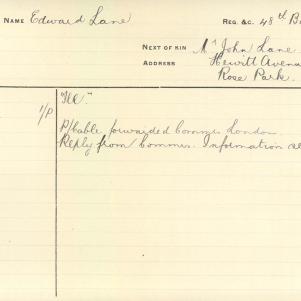 NAME Edward Lane REG. &C. 48th B
NEXT OF KIN Mr John Lane
ADDRESS Hewitt Avenu
Rose Park.
1/P
P/cable forwarded Commis London
Reply from Commis. Information